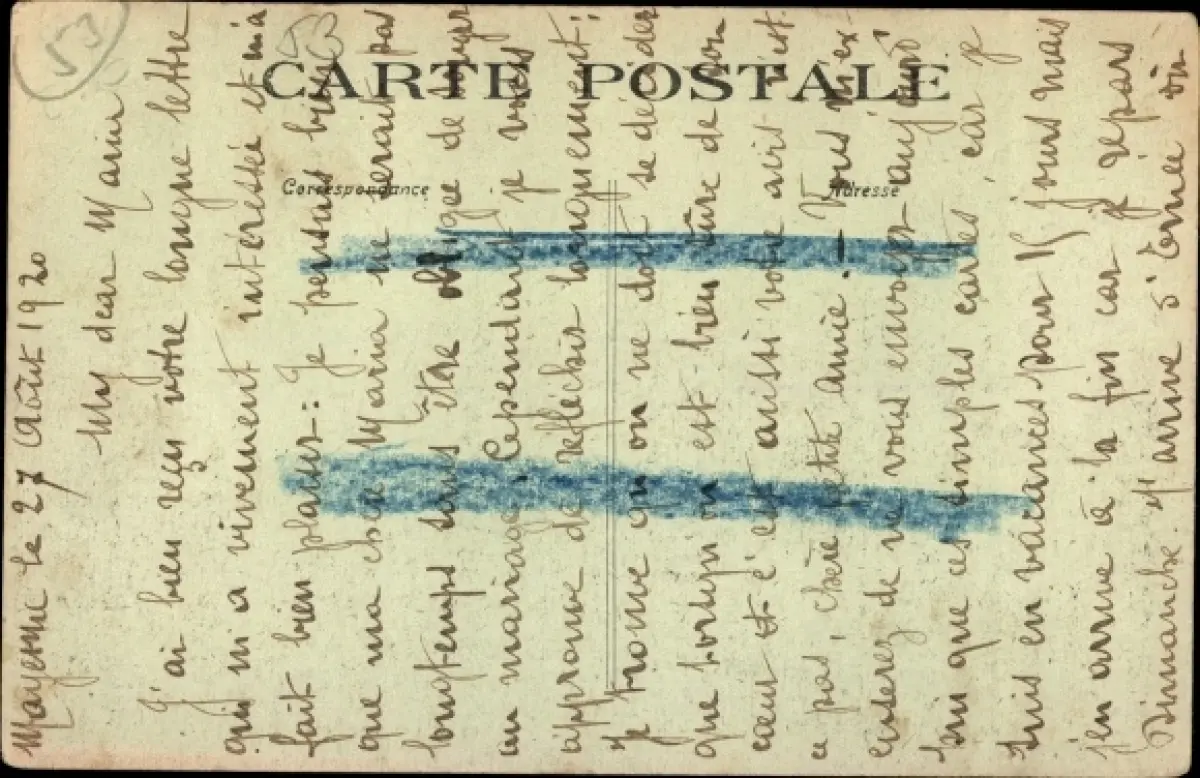 53
CARTE POSTALE
Correspondance
Adresse
Mayenne le 27 Août 1920
My dear Maria
J'ai bien reçu votre longue lettre
qui m'a vivement intéressée et m'a
fait bien plaisir: Je pensais bien
que ma chère Maria ne serait pas
longtemps sans être obligée de songer
au mariage. Cependant je vous
approuve de réfléchir longuement;
je trouve qu'on ne doit se décider
que lorsqu'on est bien sûre de son
cœur et c'est aussi votre avis n'est
ce pas, chère petite amie. - Vous m'ex-
cuserez de ne vous envoyer aujourd'
hui que ces simples cartes car je
suis en vacances pour 15 jours mais
j'en arrive à la fin car je repars
Dimanche. J'arrive d'Ernée où